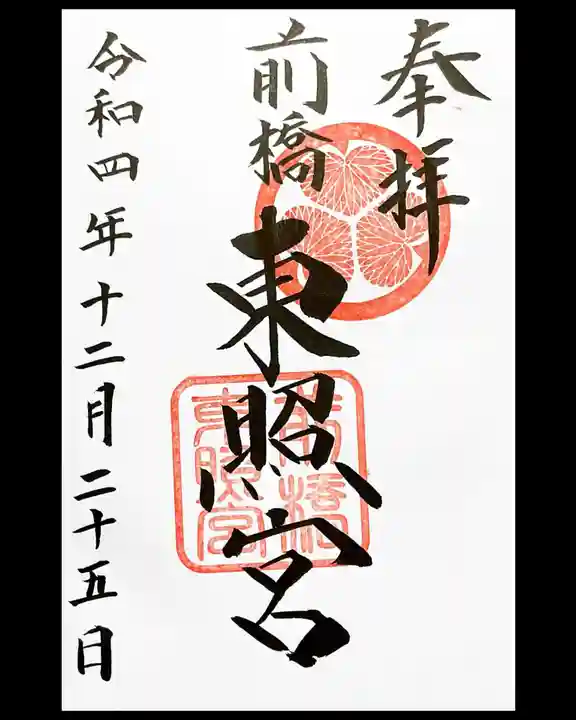 奉拝
前橋
東照宮
令和四年十二月二十五日
前橋
東照宮